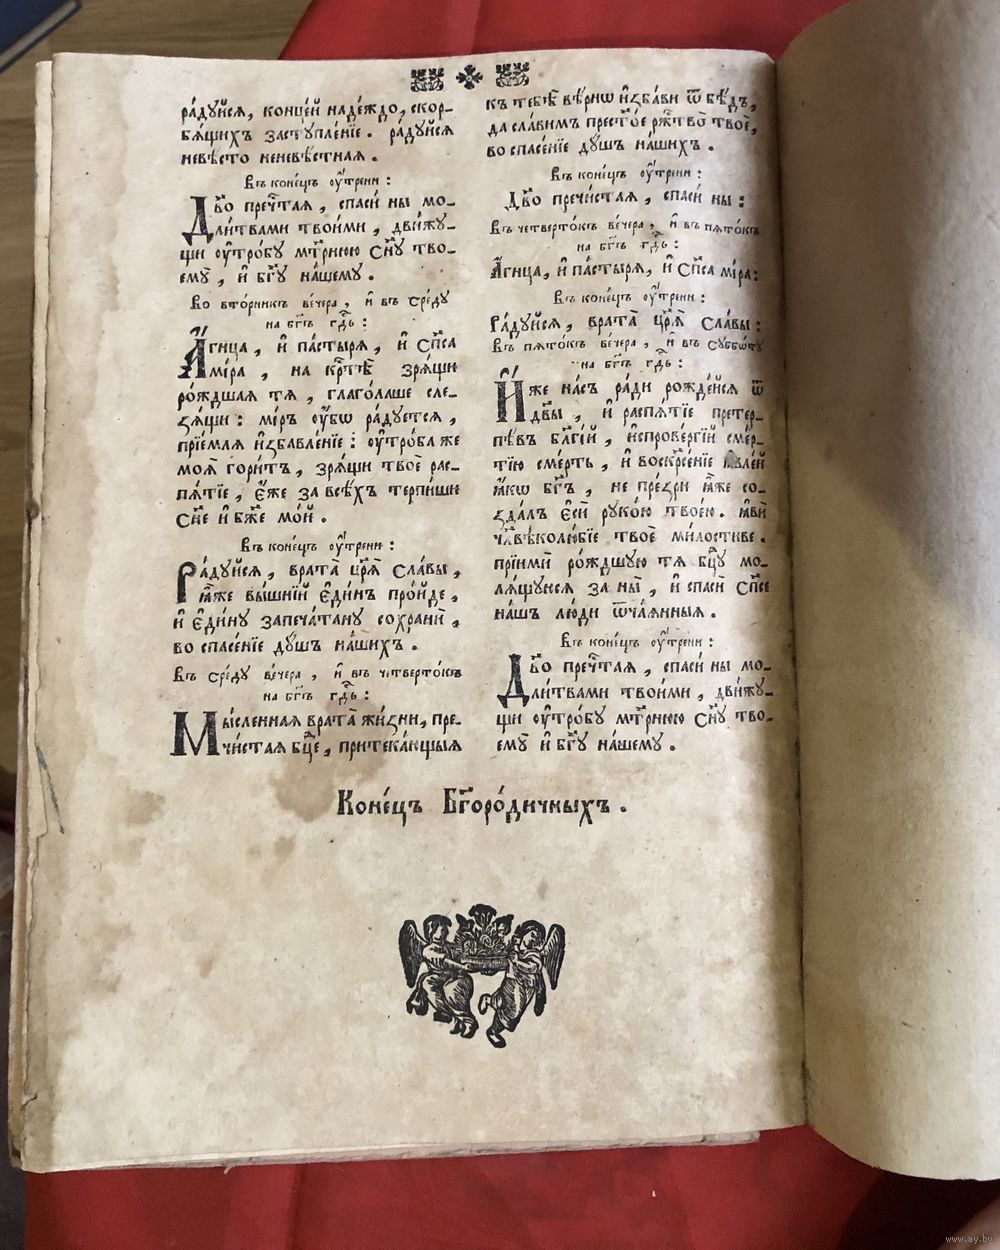 ра́дуйсѧ, конце́й наде́ждо, скор-
бѧ́щихъ застꙋпле́нїе. ра́дуйсѧ
невѣ́сто неневѣ́стнаѧ.
Въ коне́цъ оу҆́трени:
Дв҃о пречⷭ҇таѧ, спаси́ ны мо-
ли́твами твои́ми, дви́жꙋ-
щи оу҆тро́бꙋ мт҃рнюю сн҃ꙋ тво-
емꙋ̀, и҆ бг҃ꙋ на́шемꙋ.
Во вто́рникъ ве́чера, и҆ въ сре́дꙋ
на бг҃ъ гдⷭ҇ь:
А҆́гнца, и҆ па́стырѧ, и҆ сп҃са
мі́ра, на крⷭ҇тѣ̀ зрѧ́щи
ро́ждшаѧ тѧ̀, глаго́лаше сле-
зѧ́щи: мі́ръ оу҆́бѡ ра́дꙋетсѧ,
прїе́млѧ и҆збавле́нїе: оу҆тро́ба же
моѧ̀ гори́тъ, зрѧ́щи твоѐ рас-
пѧ́тїе, є҆́же за всѣ́хъ терпи́ши
сн҃е и҆ бж҃е мо́й.
Въ коне́цъ оу҆́трени:
Ра́дꙋйсѧ, врата̀ цр҃ѧ̀ сла́вы,
ꙗ҆̀же вы́шнїй є҆ди́нъ про́йде,
и҆ є҆ди́нꙋ запеча́танꙋ сохранѝ,
во спасе́нїе дꙋ́шъ на́шихъ.
Въ сре́дꙋ ве́чера, и҆ въ четверто́къ
на бг҃ъ гдⷭ҇ь:
Мы́сленнаѧ врата̀ жи́зни, пре-
чи́стаѧ бц҃е, притека́ющыѧ
къ тебѣ̀ вѣ́рнѡ и҆зба́ви ѿ бѣ́дъ,
да сла́вимъ престⷪ҇е ржⷭ҇тво̀ твоѐ,
во спасе́нїе дꙋ́шъ на́шихъ.
Въ коне́цъ оу҆́трени:
Дв҃о пречи́стаѧ, спасѝ ны:
Въ четверто́къ ве́чера, и҆ въ пѧто́къ
на бг҃ъ гдⷭ҇ь:
А҆́гнца, и҆ па́стырѧ, и҆ сп҃са мі́ра:
Въ коне́цъ оу҆́трени:
Ра́дꙋйсѧ, врата̀ цр҃ѧ̀ сла́вы:
Въ пѧто́къ ве́чера, и҆ въ сꙋббѡ́тꙋ
на бг҃ъ гдⷭ҇ь:
И҆́же на́съ ра́ди рожде́йсѧ ѿ
дв҃ы, и҆ распѧ́тїе претер-
пѣ́въ бл҃гі́й, и҆спрове́ргїй сме́р-
тїю сме́рть, и҆ воскрⷭ҇е́нїе ꙗ҆вле́й
ꙗ҆́кѡ бг҃ъ, не пре́зри ꙗ҆̀же со-
зда́лъ є҆сѝ рꙋко́ю твое́ю. ꙗ҆вѝ
чл҃вѣколю́бїе твоѐ ми́лостиве.
прїимѝ ро́ждшꙋю тѧ̀ бц҃ꙋ мо-
лѧ́щꙋюсѧ за ны̀, и҆ спасѝ сп҃се
на́шъ лю́ди ѿча́ѧнныѧ.
Въ коне́цъ оу҆́трени:
Дв҃о пречⷭ҇таѧ, спаси́ ны мо-
ли́твами твои́ми, дви́жꙋ-
щи оу҆тро́бꙋ мт҃рнюю сн҃ꙋ тво-
емꙋ̀ и҆ бг҃ꙋ на́шемꙋ.
Коне́цъ Бг҃оро́дичныхъ.
www.ay.by